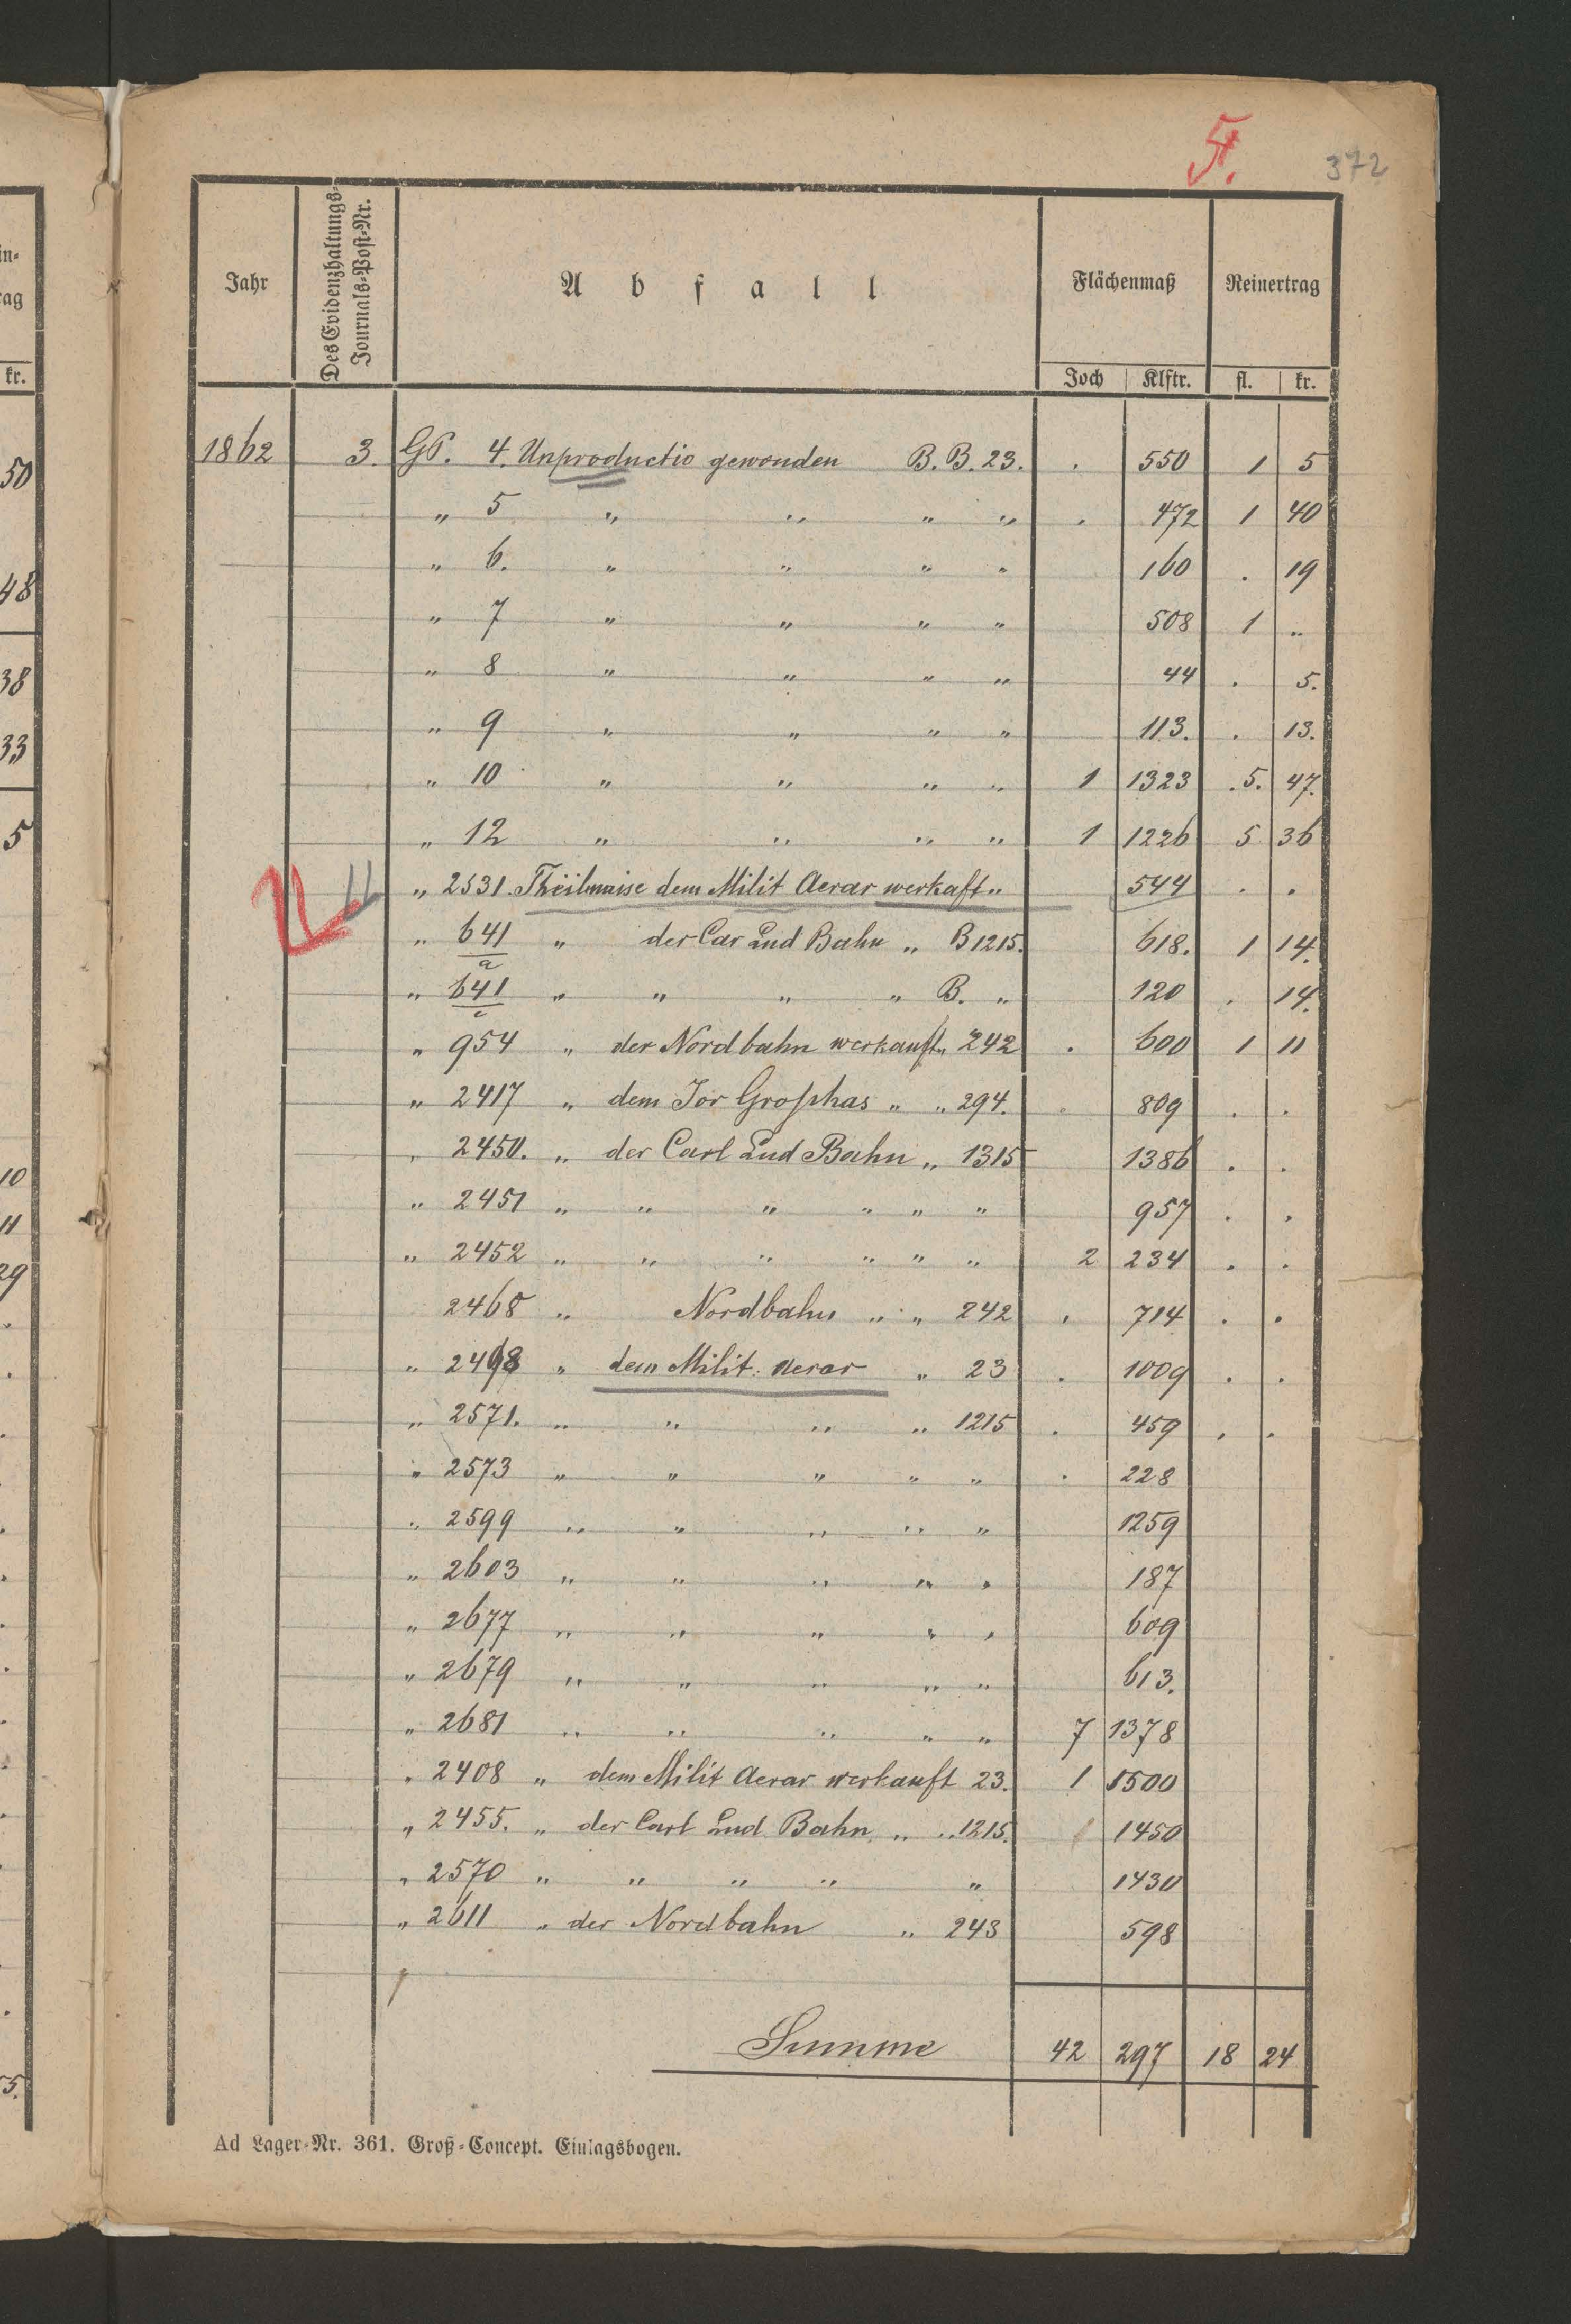 5.
372
Jahr Des Evidenzhaltungs-Journals-Post-Nr. Abfall Flächenmaß Reinertrag
Joch Klftr. fl. kr.
1862 3. GP. 4. Unproductio gewonden B. B. 23. . 550 1 5
„ 5 „ „ „ „ . 472 1 40
„ 6. „ „ „ „ 160 . 19
„ 7 „ „ „ „ 508 1 „
„ 8 „ „ „ „ 44 . 5.
„ 9 „ „ „ „ 113. . 13.
„ 10 „ „ „ „ 1 1323 .5. 47.
„ 12 „ „ „ „ 1 1226 5 36
„ 2531. Theilmaise dem Milit Aerar werkaft „ 544 . .
„ 641/a „ der Car Lud Bahn „ B 1215. 618. 1 14.
„ 641/c „ „ „ „ B. „ 120 . 14.
„ 954 „ der Nordbahn werkauft „ 242 . 600 1 11
„ 2417 „ dem Jor Groshas „ „ 294. . 809 . .
„ 2450. „ der Carl Lud Bahn „ 1315 1386 . .
„ 2451 „ „ „ „ „ „ 957 . .
„ 2452 „ „ „ „ „ „ 2 234 . .
2468 „ Nordbahn „ „ 242 . 714 . .
„ 2498 „ dem Milit. Aerar „ 23 . 1009 . .
„ 2571. „ „ „ „ 1215 . 459 . .
„ 2573 „ „ „ „ „ . 228
„ 2599 „ „ „ „ „ 1259
„ 2603 „ „ „ „ „ 187
„ 2677 „ „ „ „ „ 609
„ 2679 „ „ „ „ „ 613.
„ 2681 „ „ „ „ „ 7 1378
„ 2408 „ dem Milit Aerar werkauft 23. 1 1500
„ 2455. „ der Carl Lud Bahn „ „ 1215. 1450
„ 2570 „ „ „ „ „ 1430
„ 2611 „ der Nordbahn „ 243 598
Summe 42 297 18 24
Ad Lager-Nr. 361. Groß-Concept. Einlagsbogen.